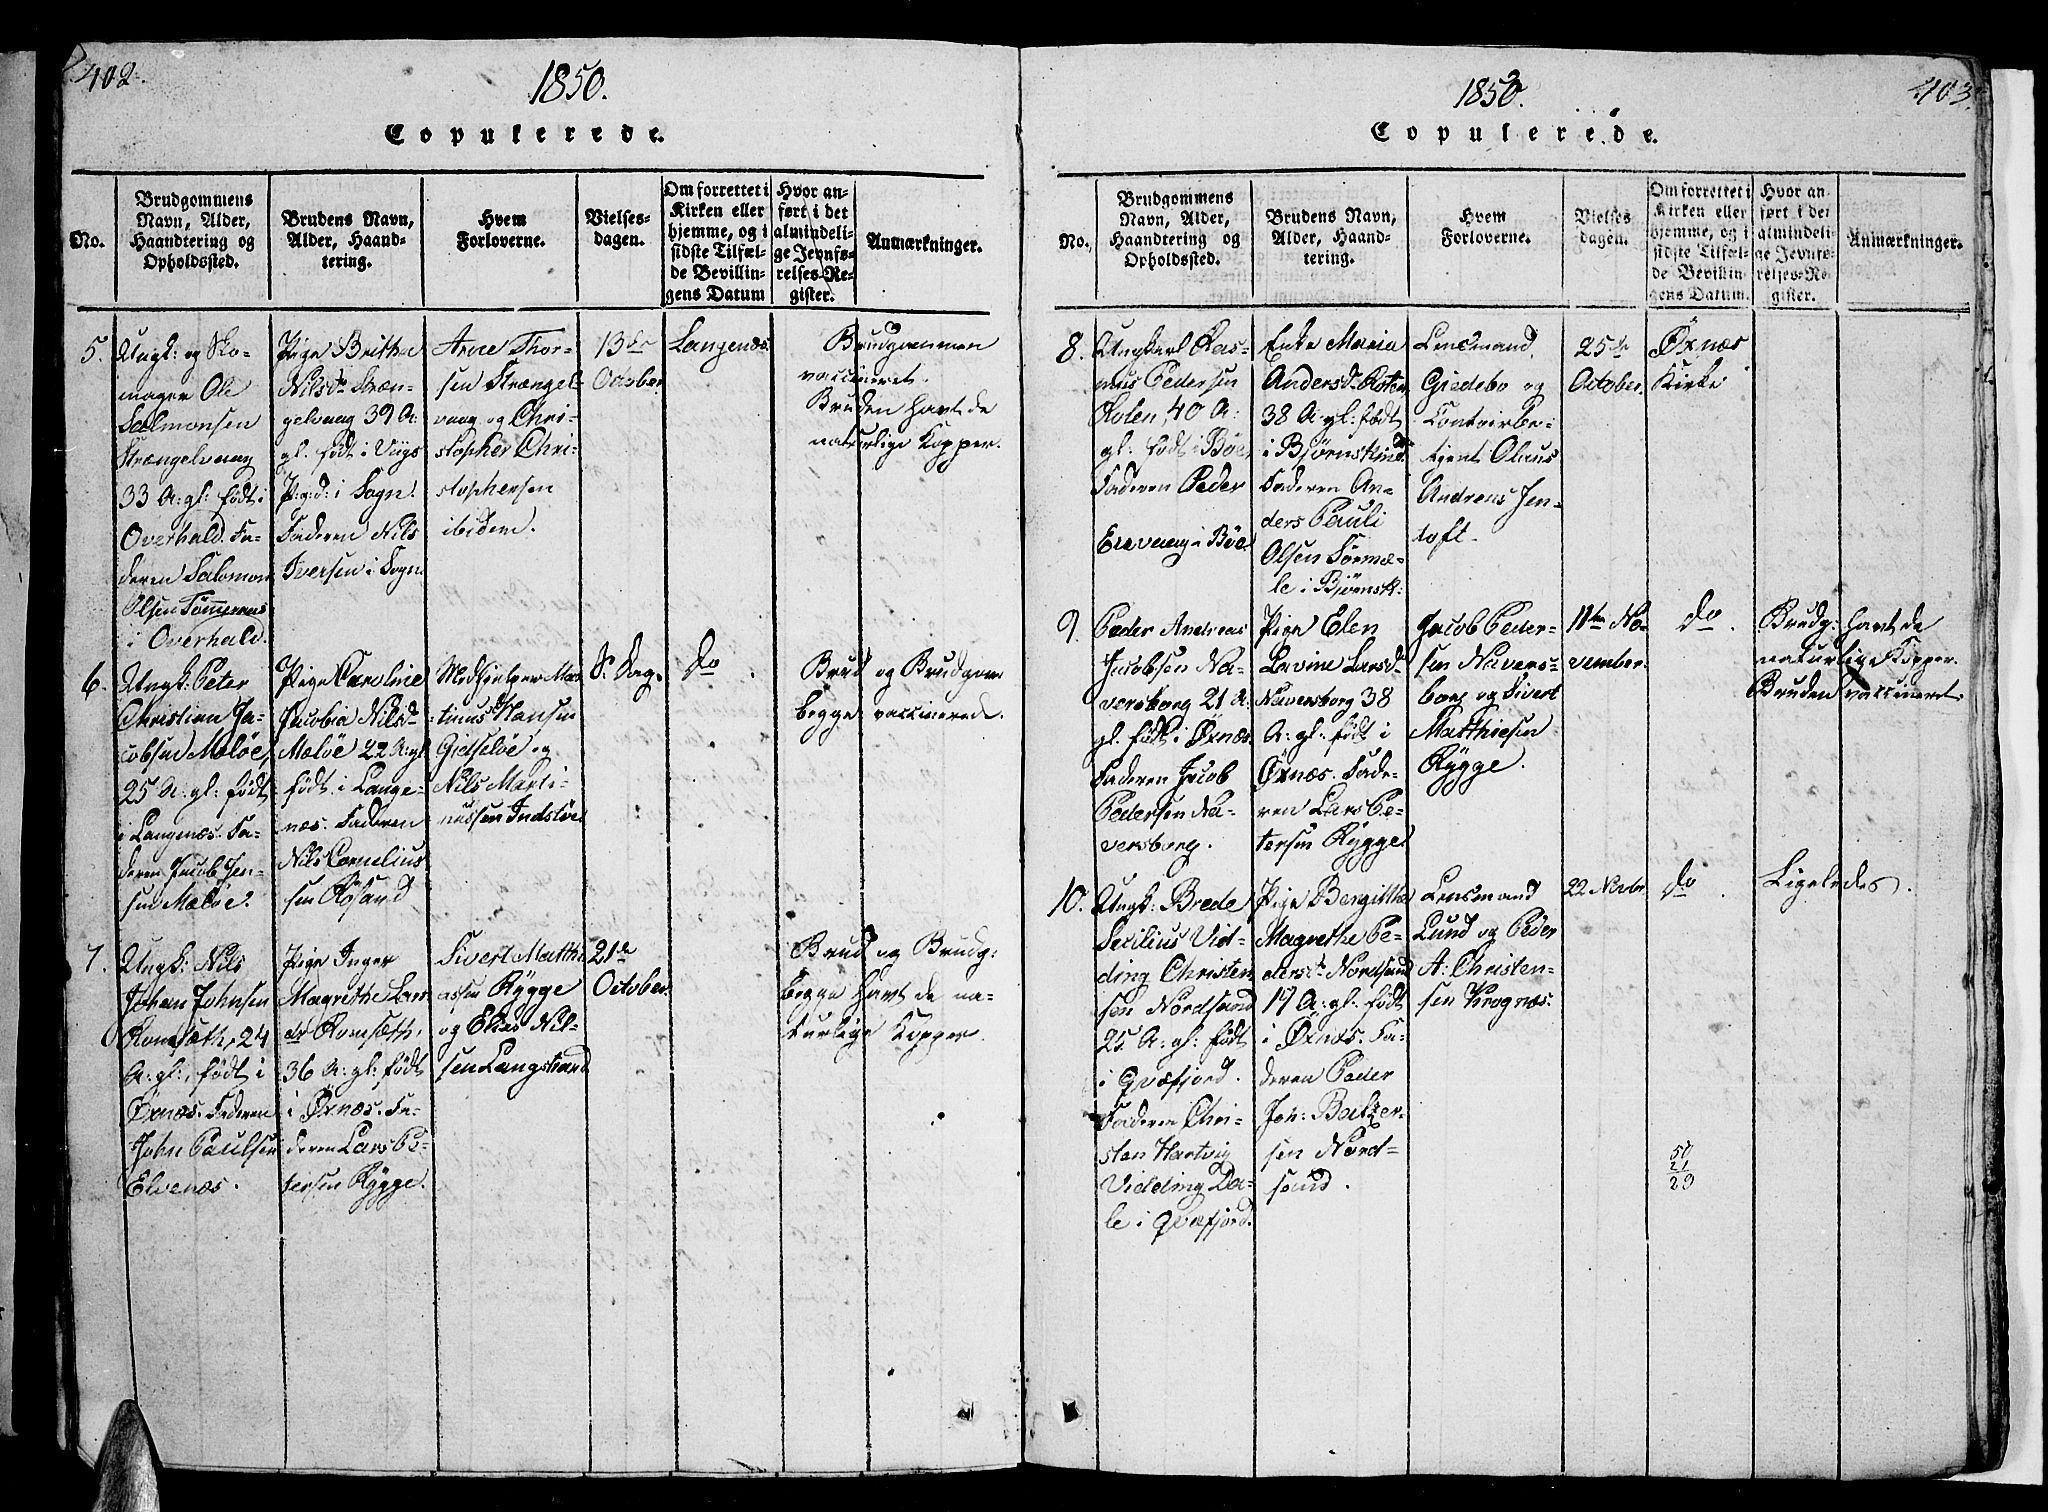 402.
1850.
Copulerede.
No.
Brudgommens
Navn, Alder,
Haandtering og
Opholdssted.
Brudens Navn,
Alder, Haand-
tering.
Hvem
Forloverne.
Vielses-
dagen.
Om forrettet i
Kirken eller
hjemme, og i
sidste Tilfæl-
de Bevillin-
gens Datum
Hvor an-
ført i det
almindeli-
ge Jevnfø-
relses-Re-
gister.
Anmærkninger.
5.
Ungk: og Sko-
mager Ole
Salmonsen
Strængelvaag
33 A: gl: født i
Overhald. Fa-
deren Salomon
Olsen Tømmeraas
i Overhald.
Pige Brithe
Nilsdr Stræn-
gelvaag 39 A:
gl. født i Viigs
P:g:d: i Sogn.
Faderen Nils
Iversen i Sogn
Arne Thor-
sen Strængel-
vaag og Chri-
stopher Chri-
stophersen
ibidem.
13de
October
Langenæs.
Brudgommen
vaccineret.
Bruden havt de
naturlige Kopper.
6.
Ungk: Peter
Christian Ja-
cobsen Meløe,
25 A: gl: født
i Langenæs. Fa-
deren Jacob Jen-
sen Meløe.
Pige Caroline
Jacobia Nilsdr
Meløe 22 A: gl
født i Lange-
næs. Faderen
Nils Cornelius-
sen Røsand
Medhjelper Mar-
tinus Hansen
Gidsløe og
Nils Marti-
nussen Indsløe
S. Dag.
do
Brud og Brudgom
begge vaccinerede.
7.
Ungk: Nils
Johan Johnsen
Romsæth, 24
A: gl:, født i
Øxnæs. Faderen
John Paulsen
Elvenæs.
Pige Inger
Magrethe Lars-
dr Romsæth,
36 A: gl: født
i Øxnæs. Fa-
deren Lars Pe-
tersen Rygge.
Sivert Matthi-
assen Rygge
og Elias Nil-
sen Langstrand
21de
October.
Brud og Brudg:
begge havt de na-
turlige Kopper.
403.
1850.
Copulerede.
No.
Brudgommens
Navn, Alder,
Haandtering og
Opholdssted.
Brudens Navn,
Alder, Haand-
tering.
Hvem
Forloverne.
Vielses
dagen.
Om forrettet i
Kirken eller
hjemme, og i
sidste Tilfæl-
de Bevillin-
gens Datum.
Hvor an-
ført i det
almindeli-
ge Jevnfø-
relses-Re-
gister.
Anmærkninger.
8.
Ungkarl Ras-
mus Pedersen
Holen, 40 A:
gl: født i Bøe,
Faderen Peder
i Bøe
Enke Maria
Andersdr
38 A: gl: født
i Bjørnskind.
Faderen An-
ders Pauli
Olsen
i Bjørnsk:
Lensmand
Giedebo og
Contoirbe-
tjent Olaus
Andreas Jen-
toft.
25de
October.
Øxnæs
Kirke
9.
Peder Andreas
Jacobsen Na-
versborg 21 A.
gl. født i Øxnæs.
Faderen Jacob
Pedersen Na-
versborg.
Pige Elen
Lavine Larsdr
Naversborg 38
A: gl: født i
Øxnæs. Fade-
ren Lars Pe-
tersen Rygge
Jacob Peder-
sen Navers-
borg og Sivert
Matthiesen
Rygge.
11te No-
vember.
do.
Brudg: havt de
naturlige Kopper.
Bruden vaccineret.
10.
Ungk: Brede
Secilius Vid-
ding Christen-
sen Nordsand
25 A: gl: født
i Qvæfjord.
Faderen Chri-
sten Hartvig
Vidding Da-
le i Qvæfjord.
Pige Bergitthe
Magrethe Pe-
dersdr Nordsand
19 A: gl: født
i Øxnæs. Fa-
deren Peder
Joh: Baltzer-
sen Nord-
sand.
Lensmand
Lund og Peder
A: Christen-
sen Krognæs.
22 Novbr
do.
Ligeledes.
50
21
29